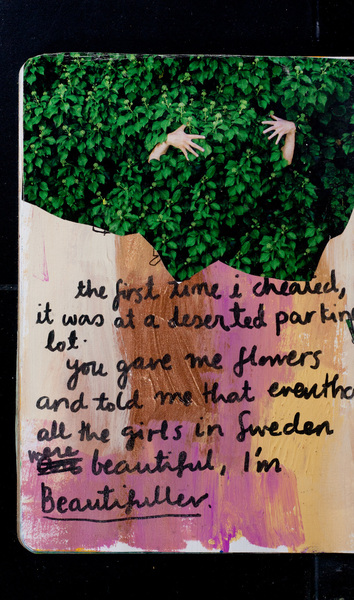 the first time i cheated,
it was at a deserted parkin
lot.
you gave me flowers
and told me that eventho
all the girls in Sweden
were beautiful, I'm
Beautifuller.